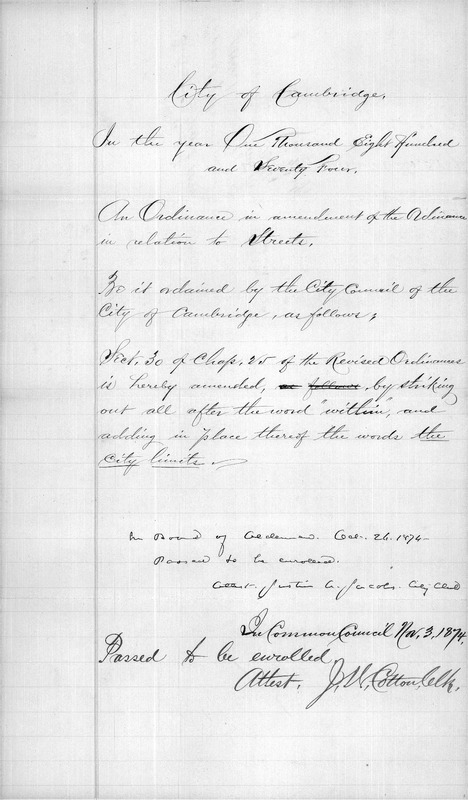 City of Cambridge.
In the year One Thousand Eight Hundred
and Seventy Four.
An Ordinance in amendment of the Ordinance
in relation to Streets.
Be it ordained by the City Council of the
City of Cambridge, as follows;
Sect. 30 of Chap. 25 of the Revised Ordinances
is hereby amended, as follows, by striking
out all after the word "within", and
adding in place thereof the words the
City limits.
In Board of Aldermen. Oct. 26. 1874
Passed to be enrolled.
Attest. Justin A. Jacobs. City Clerk
In Common Council Nov. 3, 1874.
Passed to be enrolled
Attest, J. W. Cotton, Clk.